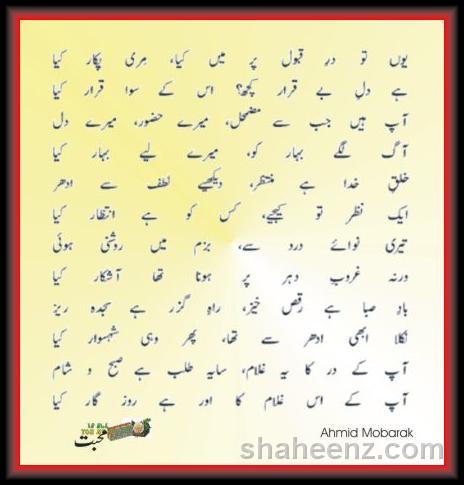 یوں تو درِ قبول پر میں کیا، مری پکار کیا
ہے دلِ بے قرار کچھ؟ اس کے سوا قرار کیا
آپ ہیں جب سے مضمحل، میرے حضور، میرے دل
آگ لگے بہار کو، میرے لیے بہار کیا
خلقِ خدا ہے منتظر، دیکھیے لطف سے ادھر
ایک نظر تو کیجیے، کس کو ہے انتظار کیا
تیری نوائے درد سے، بزم میں روشنی ہوئی
ورنہ غروبِ دہر پر ہونا تھا آشکار کیا
بادِ صبا ہے رقص خیز، راہ گزر ہے سجدہ ریز
نکلا ابھی ادھر سے تھا، پھر وہی شہسوار کیا
آپ کے در کا یہ غلام، سایہ طلب ہے صبح و شام
آپ کے اس غلام کا اور ہے روز گار کیا
محبت
Ahmid Mobarak
shaheenz.com